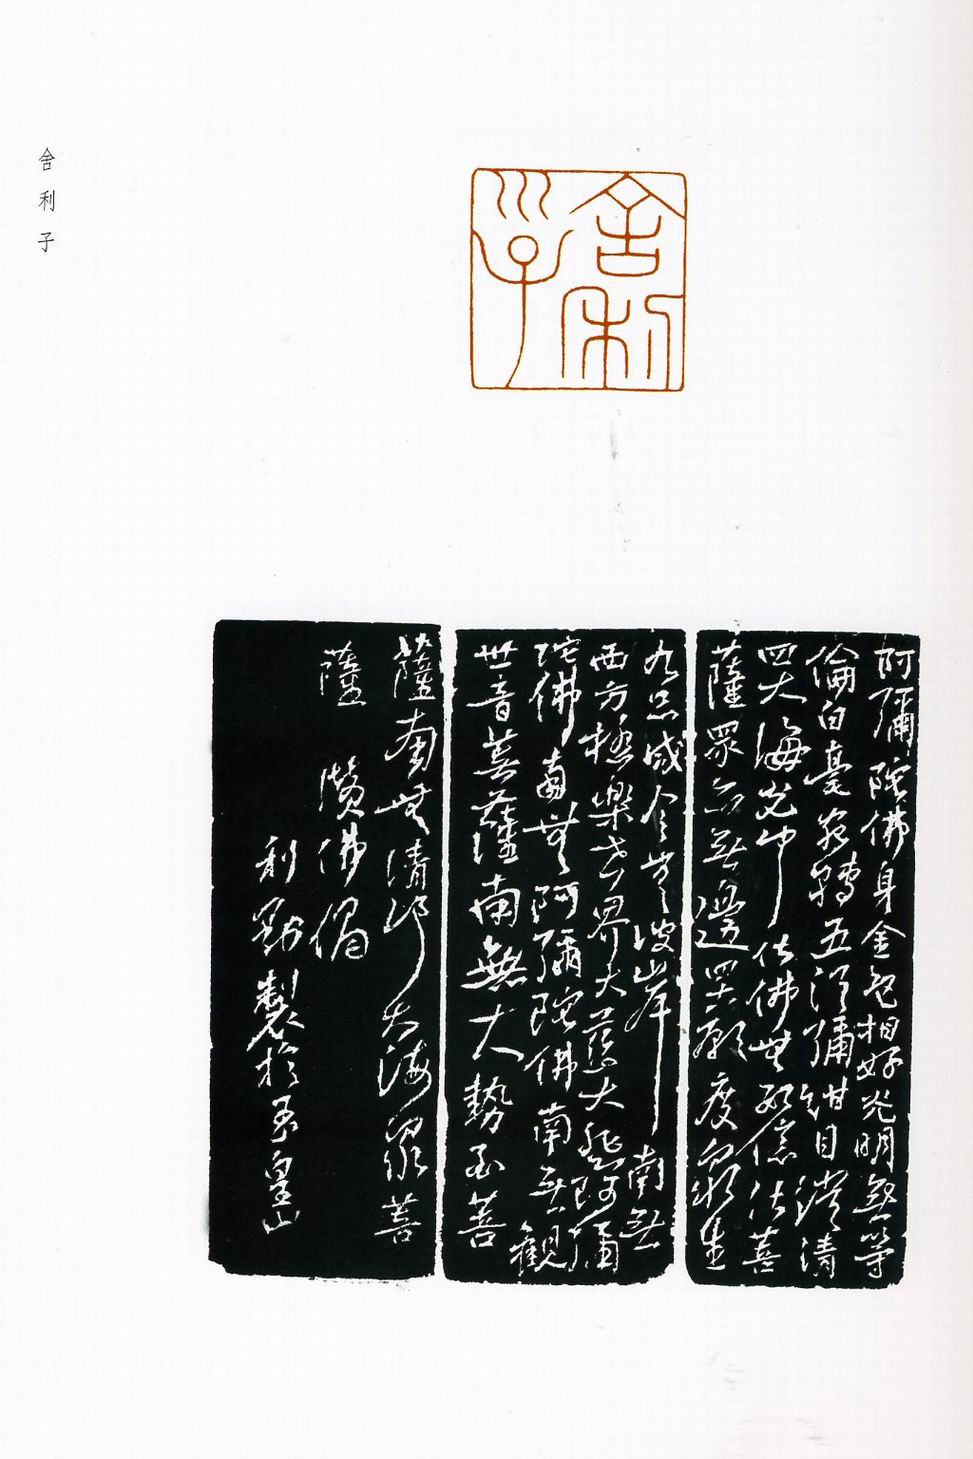 舍利子
舍利子
阿彌陀佛身金色相好光明無等
倫白毫宛轉五須彌紺目澄清
四大海光中化佛無數億化菩
薩眾亦無邊四十八願度眾生
九品咸令登彼岸 南無
西方極樂世界大慈大悲阿彌
陀佛南無阿彌陀佛南無觀
世音菩薩南無大勢至菩
薩南無清淨大海眾菩
薩 讚佛偈
製於玉皇山